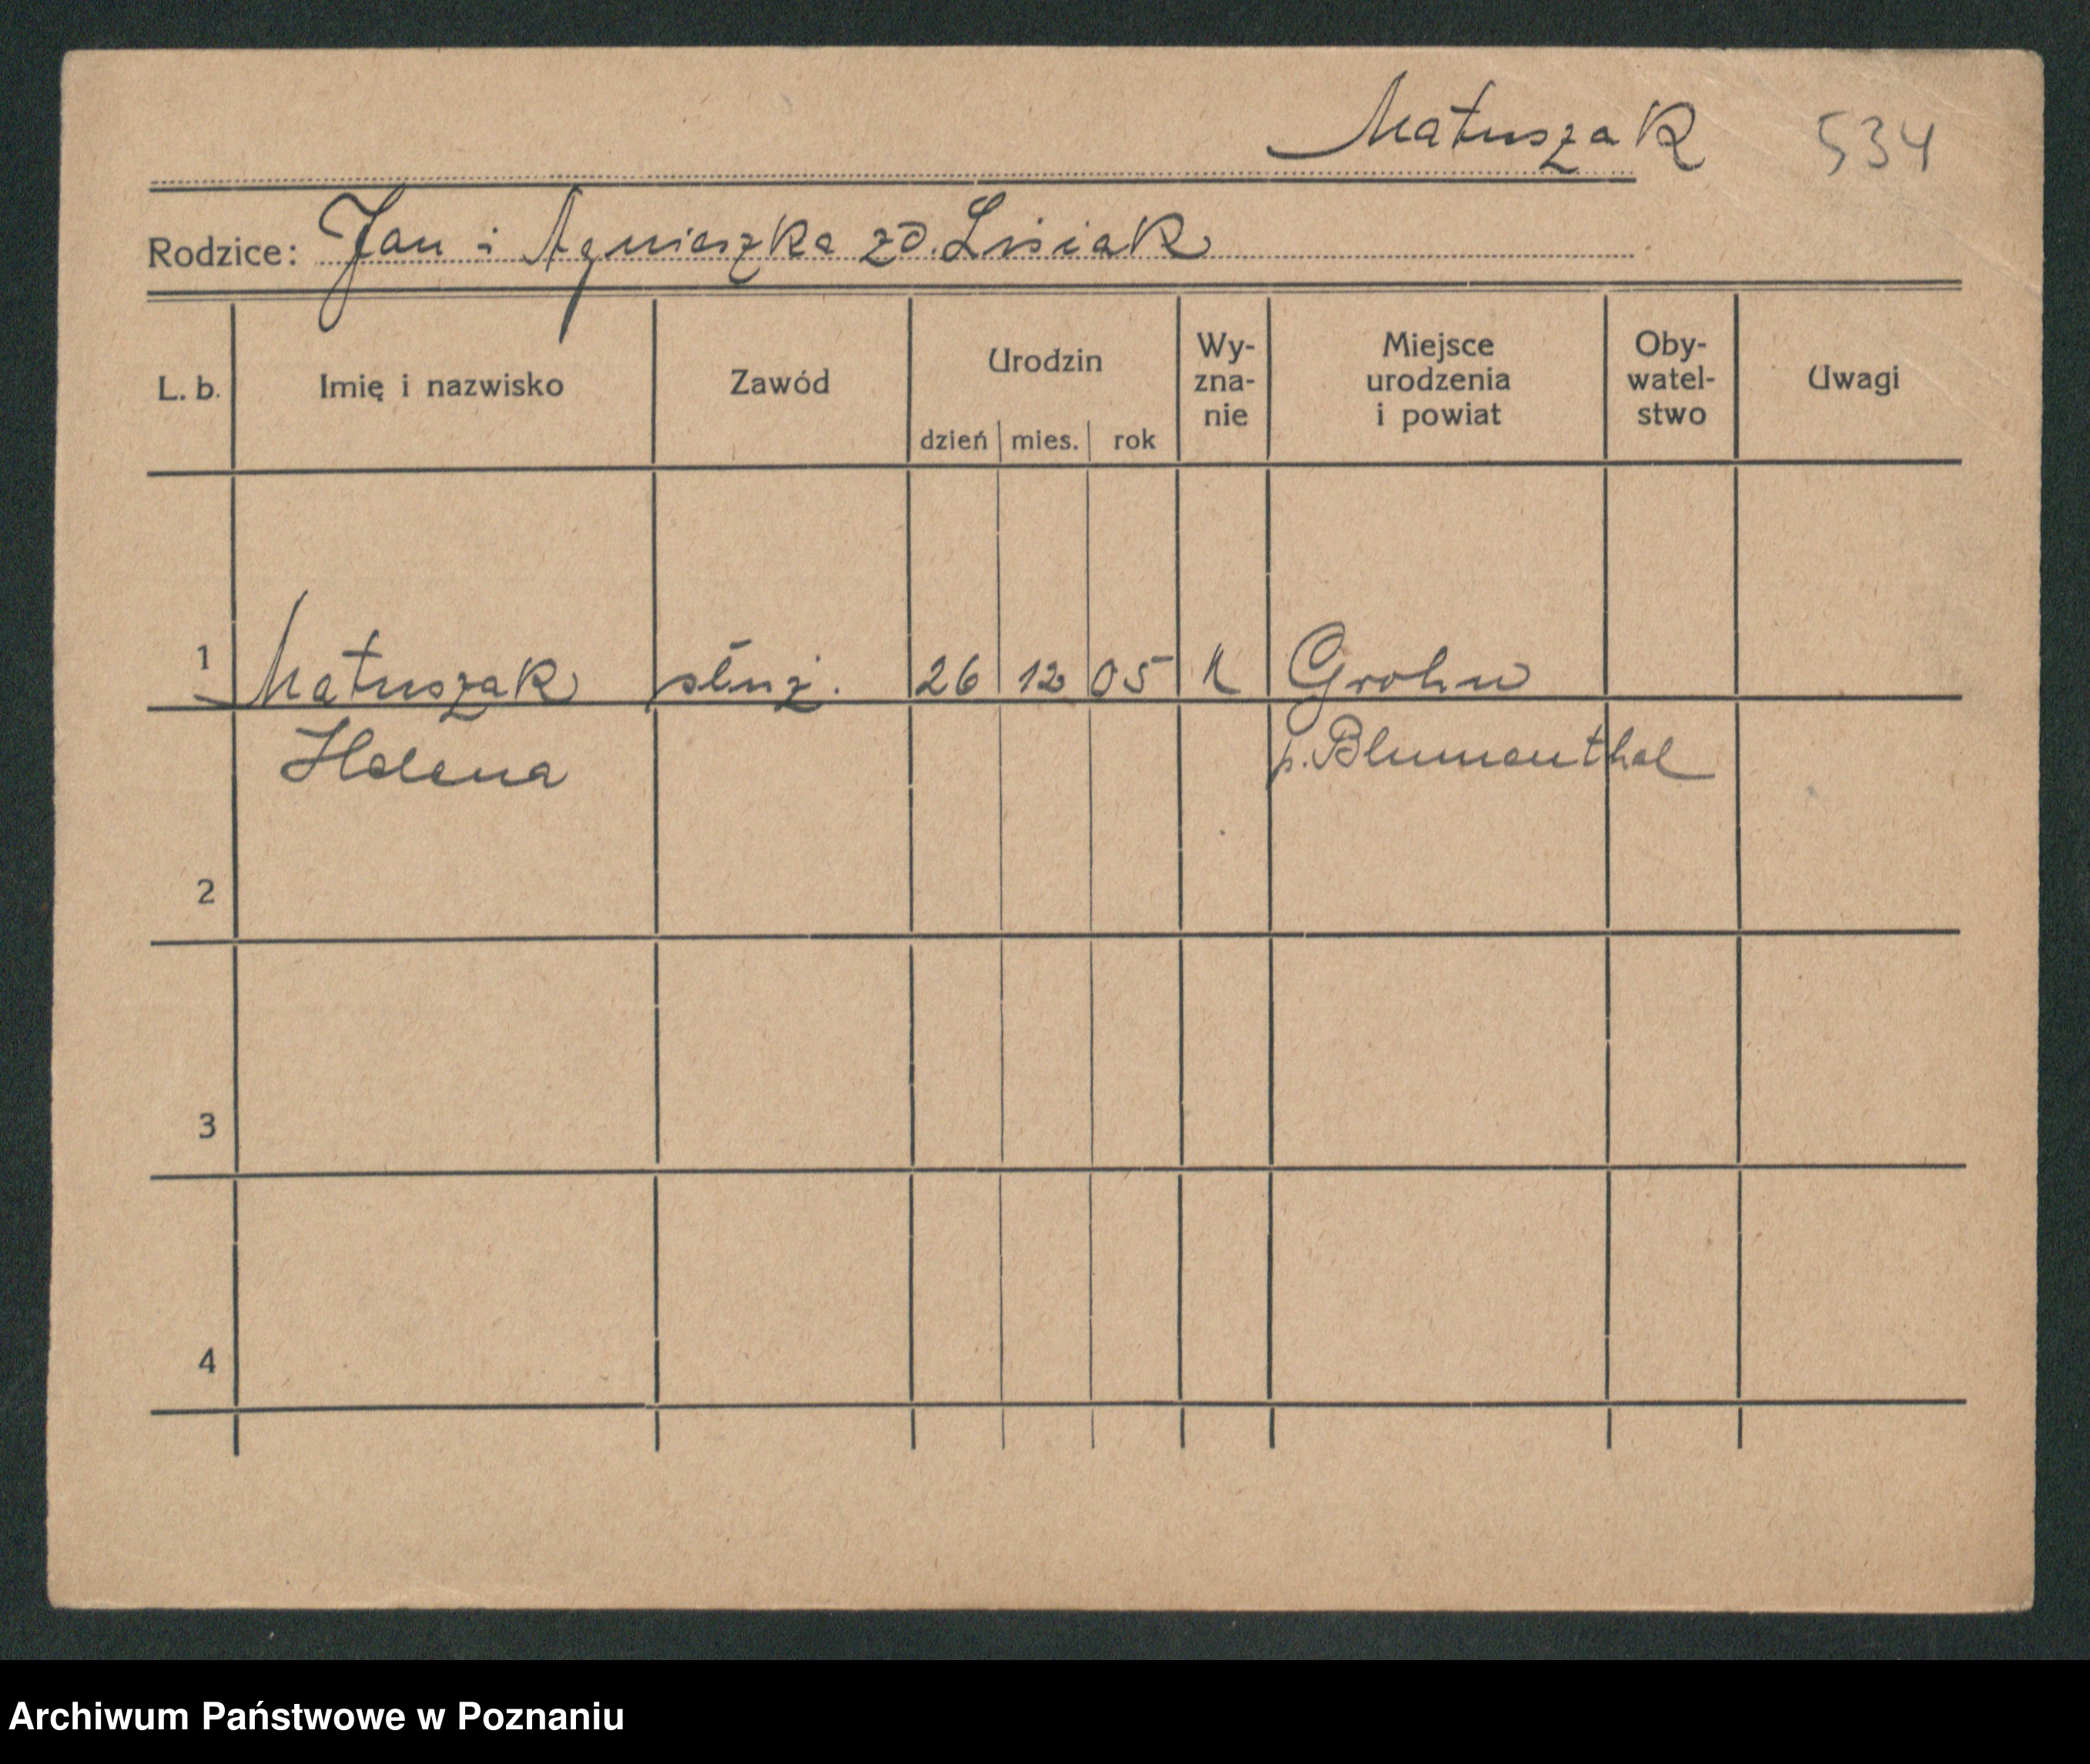 Matuszak 534
Rodzice: Jan i Agnieszka zd. Lisiak
L. b. Imię i nazwisko Zawód Urodzin dzień mies. rok Wy-zna-nie Miejsce urodzenia i powiat Oby-watel-stwo Uwagi
1 Matuszak służ. 26 12 05 k Grohn
Helena p. Blumenthal
2
3
4
Archiwum Państwowe w Poznaniu